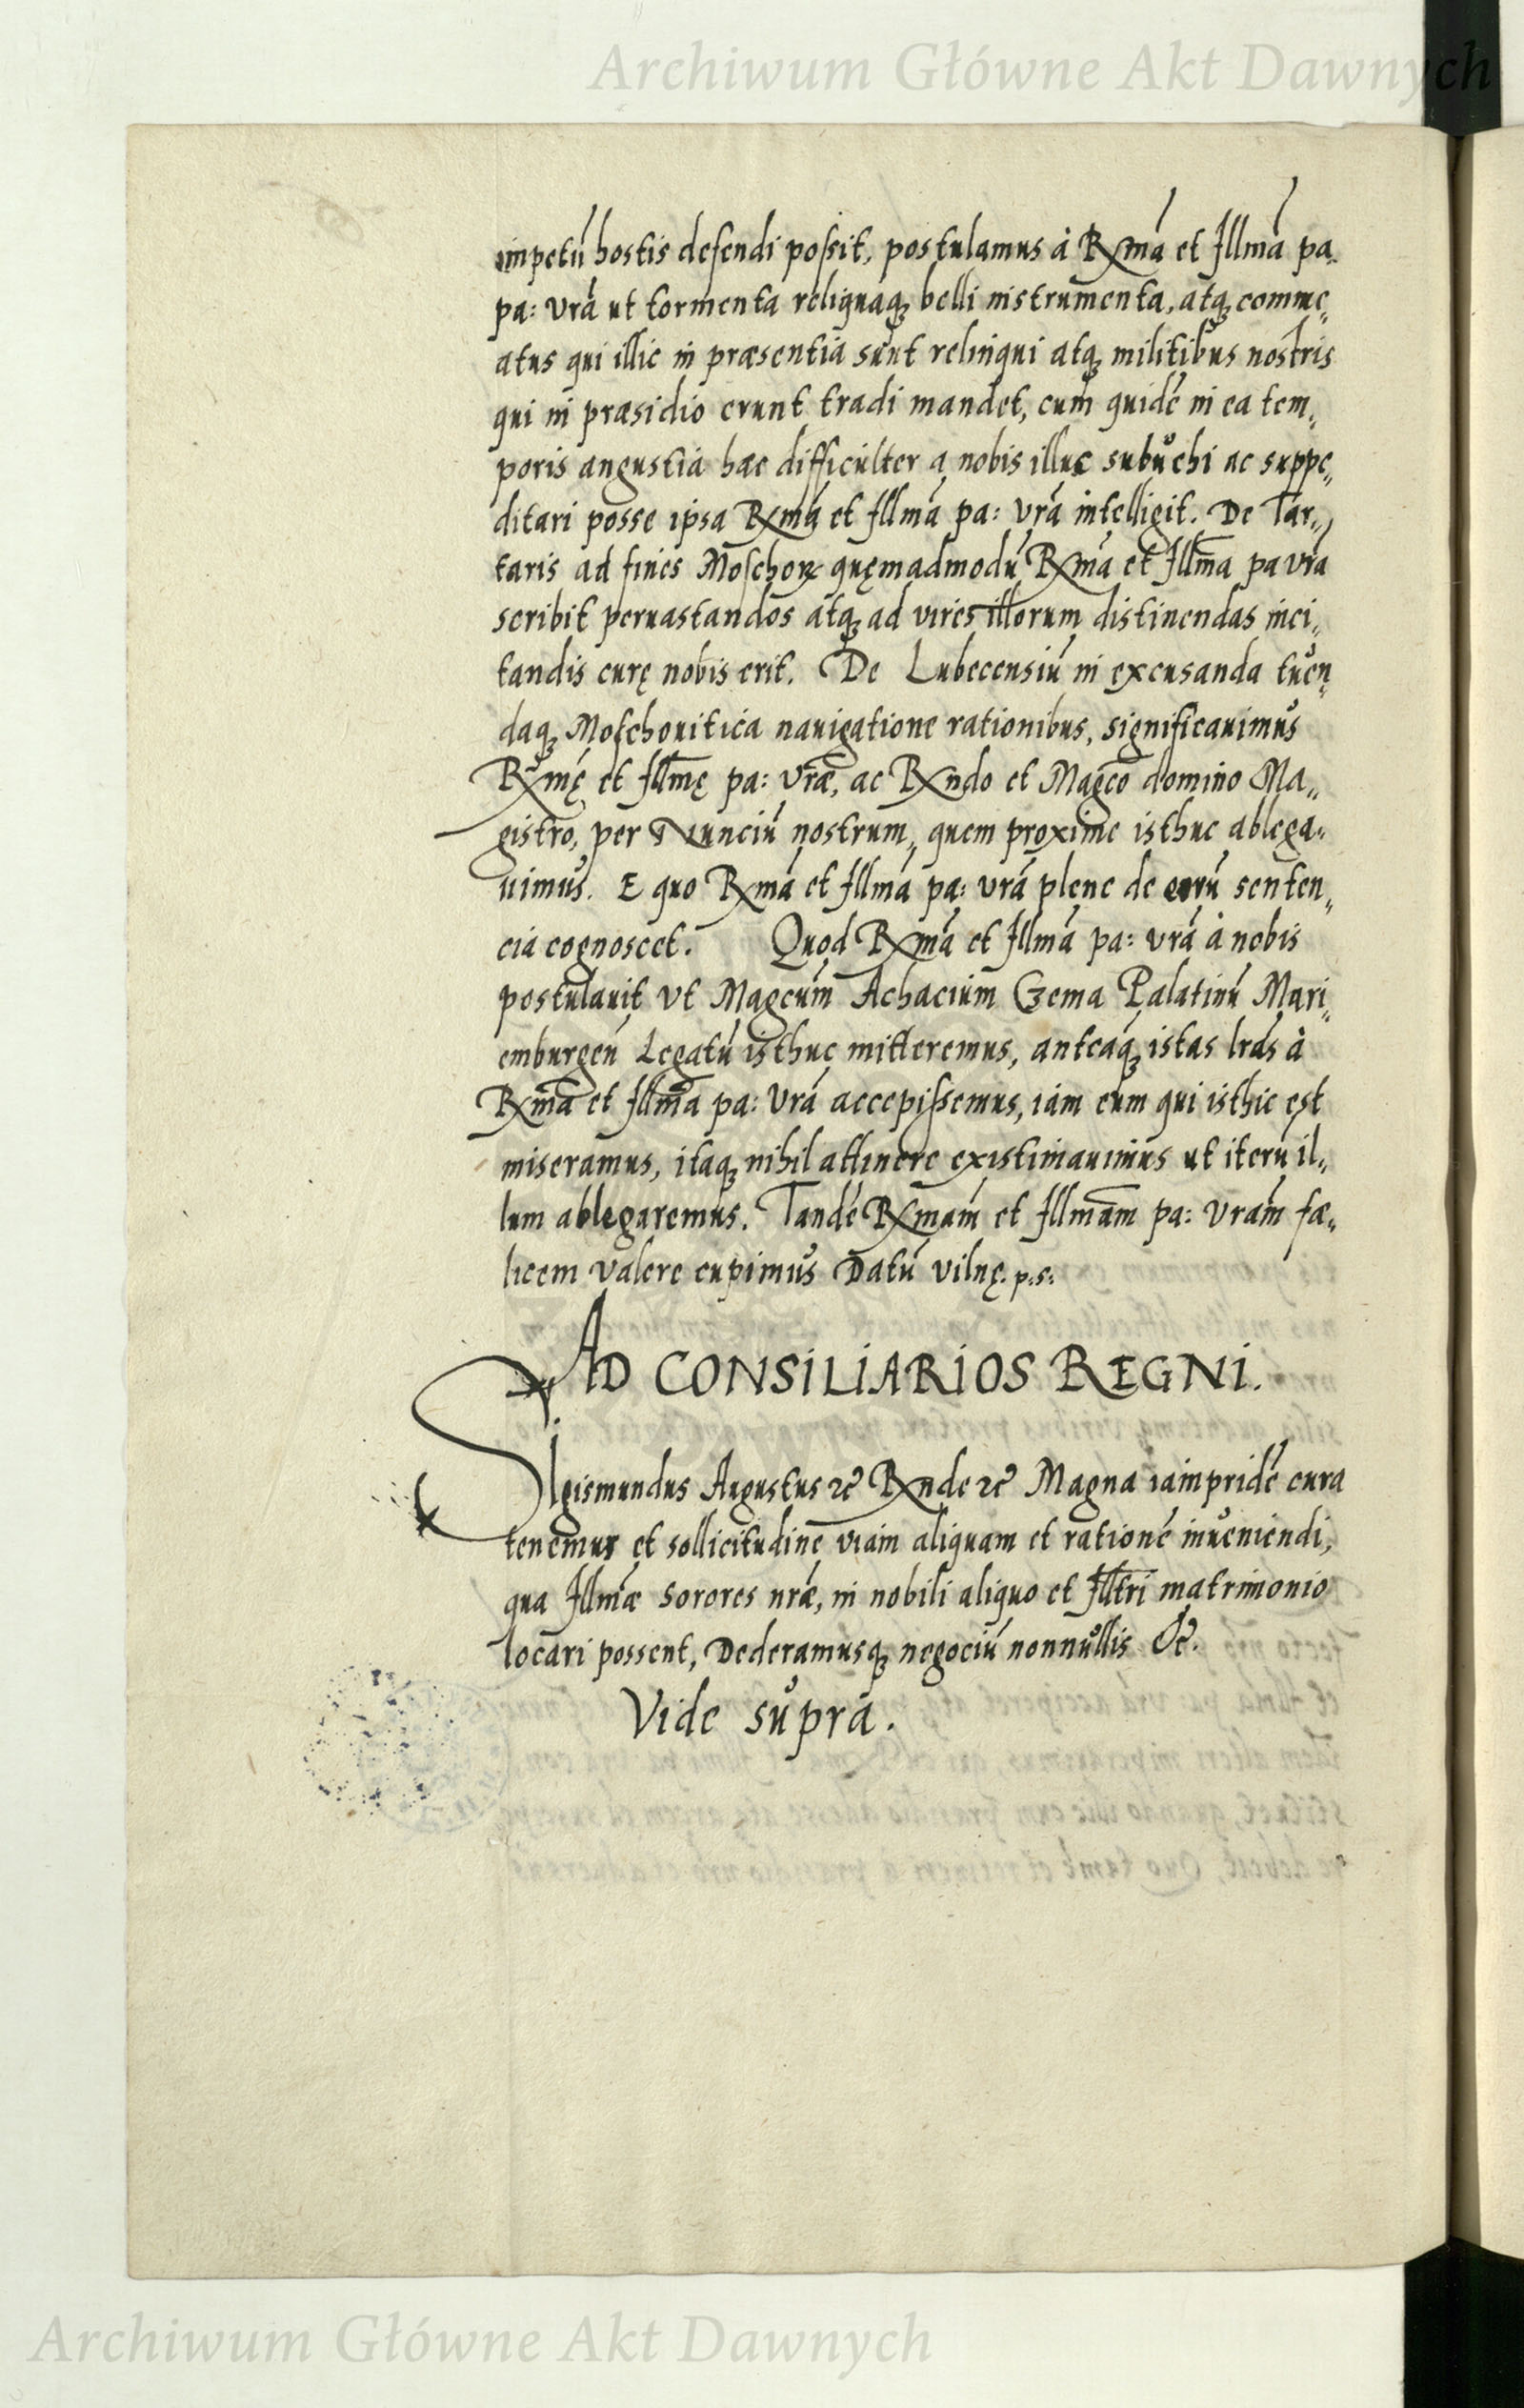 Archiwum Główne Akt Dawnych
impetū hostis defendi possit, postulamus à Rxmā et Illmā pa.
pa: vrā ut tormenta reliquaq; belli instrumenta, atq; comme„
atus qui illic in præsentia sunt relinqui atq; militibus nostris
qui in præsidio erunt tradi mandet, cum quidē in ea tem„
poris angustia hæc difficulter a nobis illuc subuehi ac suppe„
ditari posse ipsa Rxmā et Illmā pa: vrā intelligit. De Tar„
taris ad fines Moschorꝝ quęmadmodū Rxmā et Illmā pa vrā
scribit peruastandos atq; ad vires illorum distinendas inci„
tandis curę nobis erit. De Lubecensiū in excusanda tuen„
daq; Moschouitica nauigatione rationibus, significauimus
Rxmę et Illmę pa: vræ, ac Rxndo et Magco domino Ma„
gistro, per Nunciū nostrum, quem proxime isthuc ablega„
uimus. E quo Rxmā et Illmā pa: vrā plene de eorū senten„
cia cognoscet. Quod Rxmā et Illmā pa: vrā à nobis
postulauit vt Magcum Achacium Czema Palatinū Mari„
emburgeñ Legatū isthuc mitteremus, anteaq̄; istas lrās à
Rxmā et Illmā pa: vrā accepissemus, iam eum qui isthic est
miseramus, itaq; nihil attinere existimauimus ut iterū il„
lum ablegaremus. Tandē Rxmam et Illmam pa: vram fæ„
licem valere cupimus Datū vilnę. p:s:
AD CONSILIARIOS REGNI.
Sigismundus Augustus ꝛc̄ Rxnde ꝛc̄ Magna iampridē cura
tenemur et sollicitudine viam aliquam et rationē inueniendi,
qua Illmæ Sorores nræ, in nobili aliquo et Illtri matrimonio
locari possent, Dederamusq; negociū nonnullis &c̄.
Vide supra.
Archiwum Główne Akt Dawnych